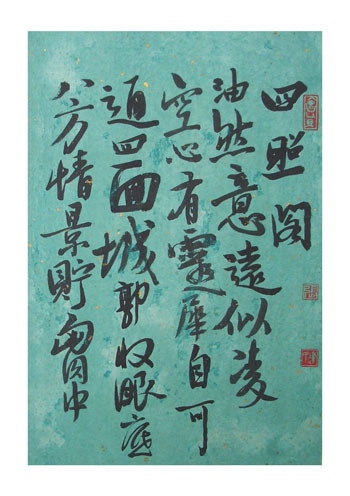 四照阁
油然意遠似凌
空心有靈犀自可
通四面城郭收眼底
八方情景貯胸中